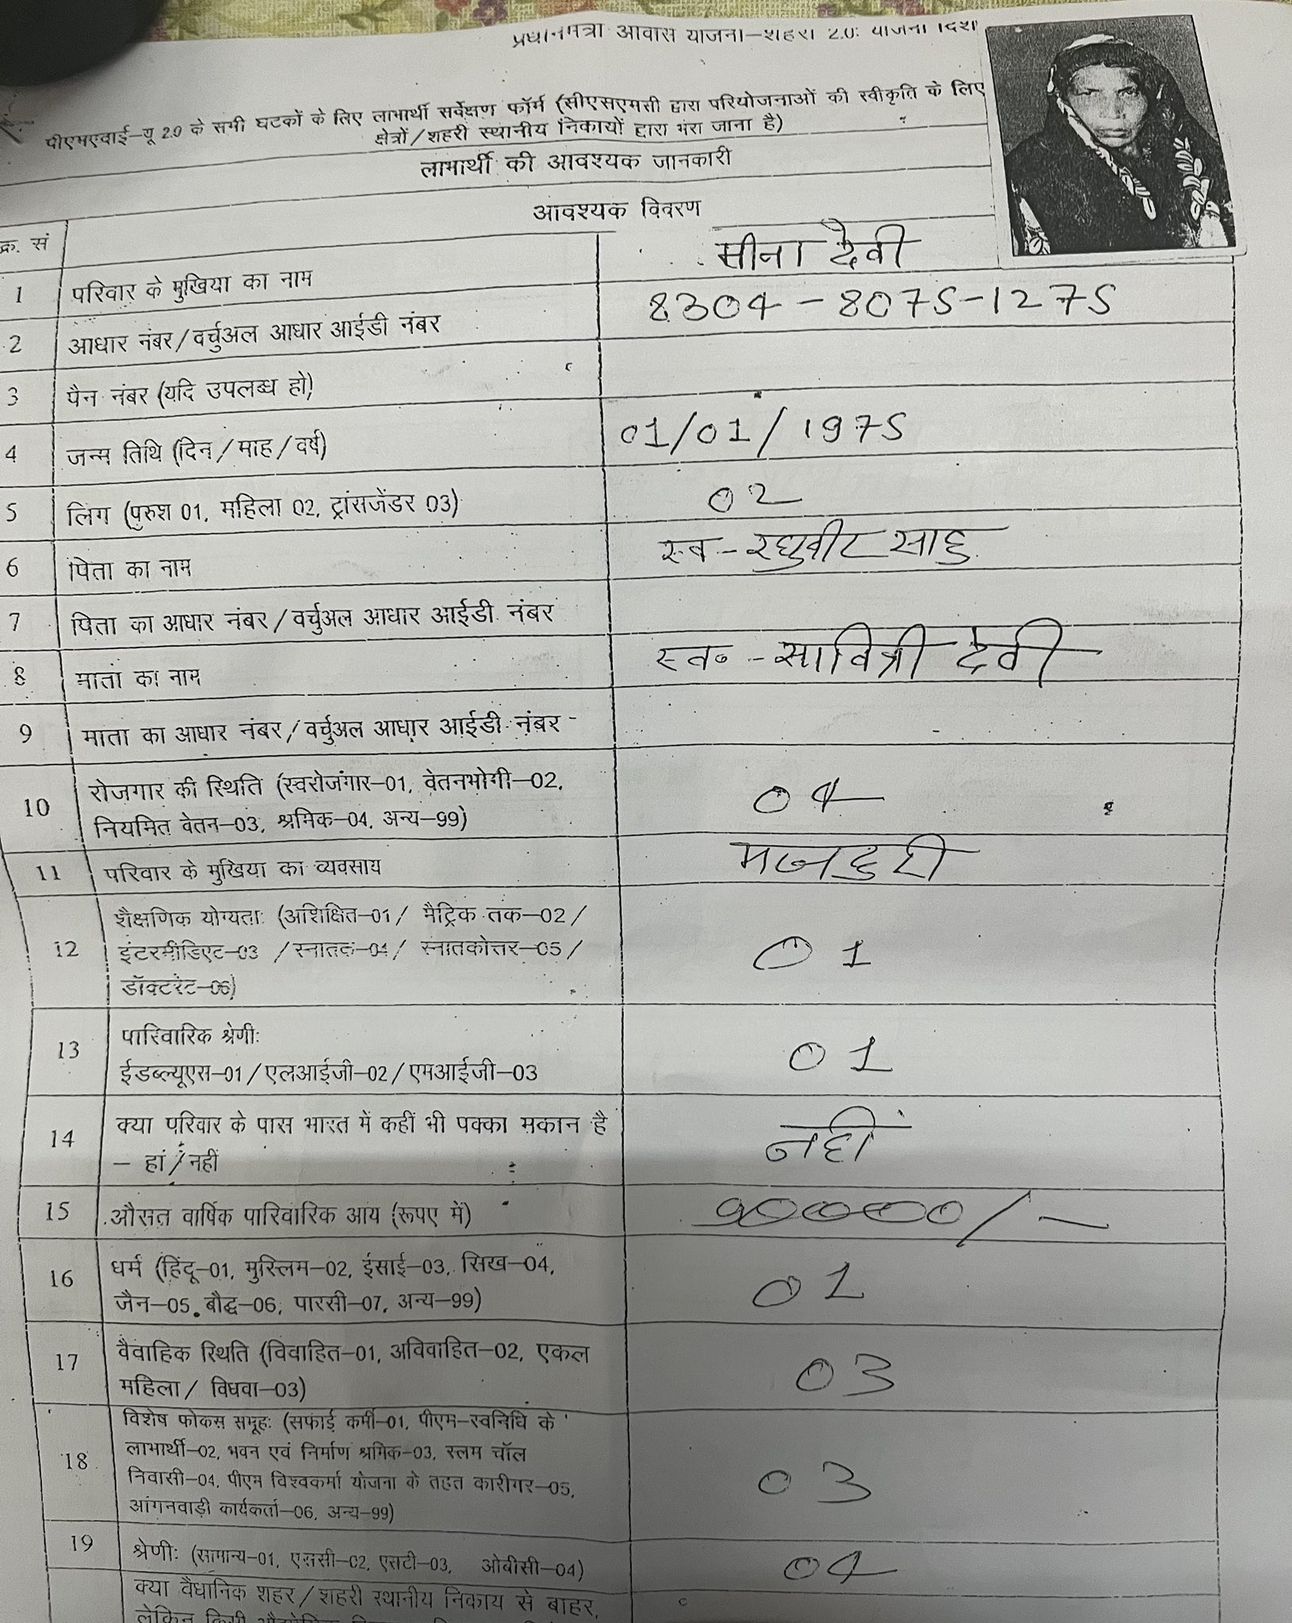 प्रधानमंत्री आवास योजना–शहरी 2.0: योजना दिशा
पीएमएवाई–यू 2.0 के सभी घटकों के लिए लाभार्थी सर्वेक्षण फॉर्म (सीएसएमसी द्वारा परियोजनाओं की स्वीकृति के लिए
क्षेत्रों/शहरी स्थानीय निकायों द्वारा भरा जाना है)
लाभार्थी की आवश्यक जानकारी
क्र. सं आवश्यक विवरण
1 परिवार के मुखिया का नाम मीना देवी
2 आधार नंबर/वर्चुअल आधार आईडी नंबर 8304-8075-1275
3 पैन नंबर (यदि उपलब्ध हो)
4 जन्म तिथि (दिन/माह/वर्ष) 01/01/1975
5 लिंग (पुरुश 01, महिला 02, ट्रांसजेंडर 03) 02
6 पिता का नाम स्व-रघुवीर साहु
7 पिता का आधार नंबर/वर्चुअल आधार आईडी नंबर
8 माता का नाम स्व०-सावित्री देवी
9 माता का आधार नंबर/वर्चुअल आधार आईडी नंबर
10 रोजगार की स्थिति (स्वरोजगार–01, वेतनभोगी–02,
नियमित वेतन–03, श्रमिक–04, अन्य–99) 04
11 परिवार के मुखिया का व्यवसाय मजदुरी
12 शैक्षणिक योग्यताः (अशिक्षित–01/ मैट्रिक तक–02/
इंटरमीडिएट–03 /स्नातक–04/ स्नातकोत्तर–05/
डॉक्टरेट–06) 01
13 पारिवारिक श्रेणीः
ईडब्ल्यूएस–01/एलआईजी–02/एमआईजी–03 01
14 क्या परिवार के पास भारत में कहीं भी पक्का मकान है
– हां/नहीं नहीं
15 औसत वार्षिक पारिवारिक आय (रूपए में)
16 धर्म (हिंदू–01, मुस्लिम–02, ईसाई–03, सिख–04,
जैन–05, बौद्ध–06, पारसी–07, अन्य–99) 01
17 वैवाहिक स्थिति (विवाहित–01, अविवाहित–02, एकल
महिला/ विधवा–03) 03
18 विशेष फोकस समूहः (सफाई कर्मी–01, पीएम–स्वनिधि के
लाभार्थी–02, भवन एवं निर्माण श्रमिक–03, स्लम चॉल
निवासी–04, पीएम विश्वकर्मा योजना के तहत कारीगर–05,
आंगनवाड़ी कार्यकर्ता–06, अन्य–99) 03
19 श्रेणीः (सामान्य–01, एससी–02, एसटी–03, ओबीसी–04) 04
क्या वैधानिक शहर/शहरी स्थानीय निकाय से बाहर,
लेकिन किसी